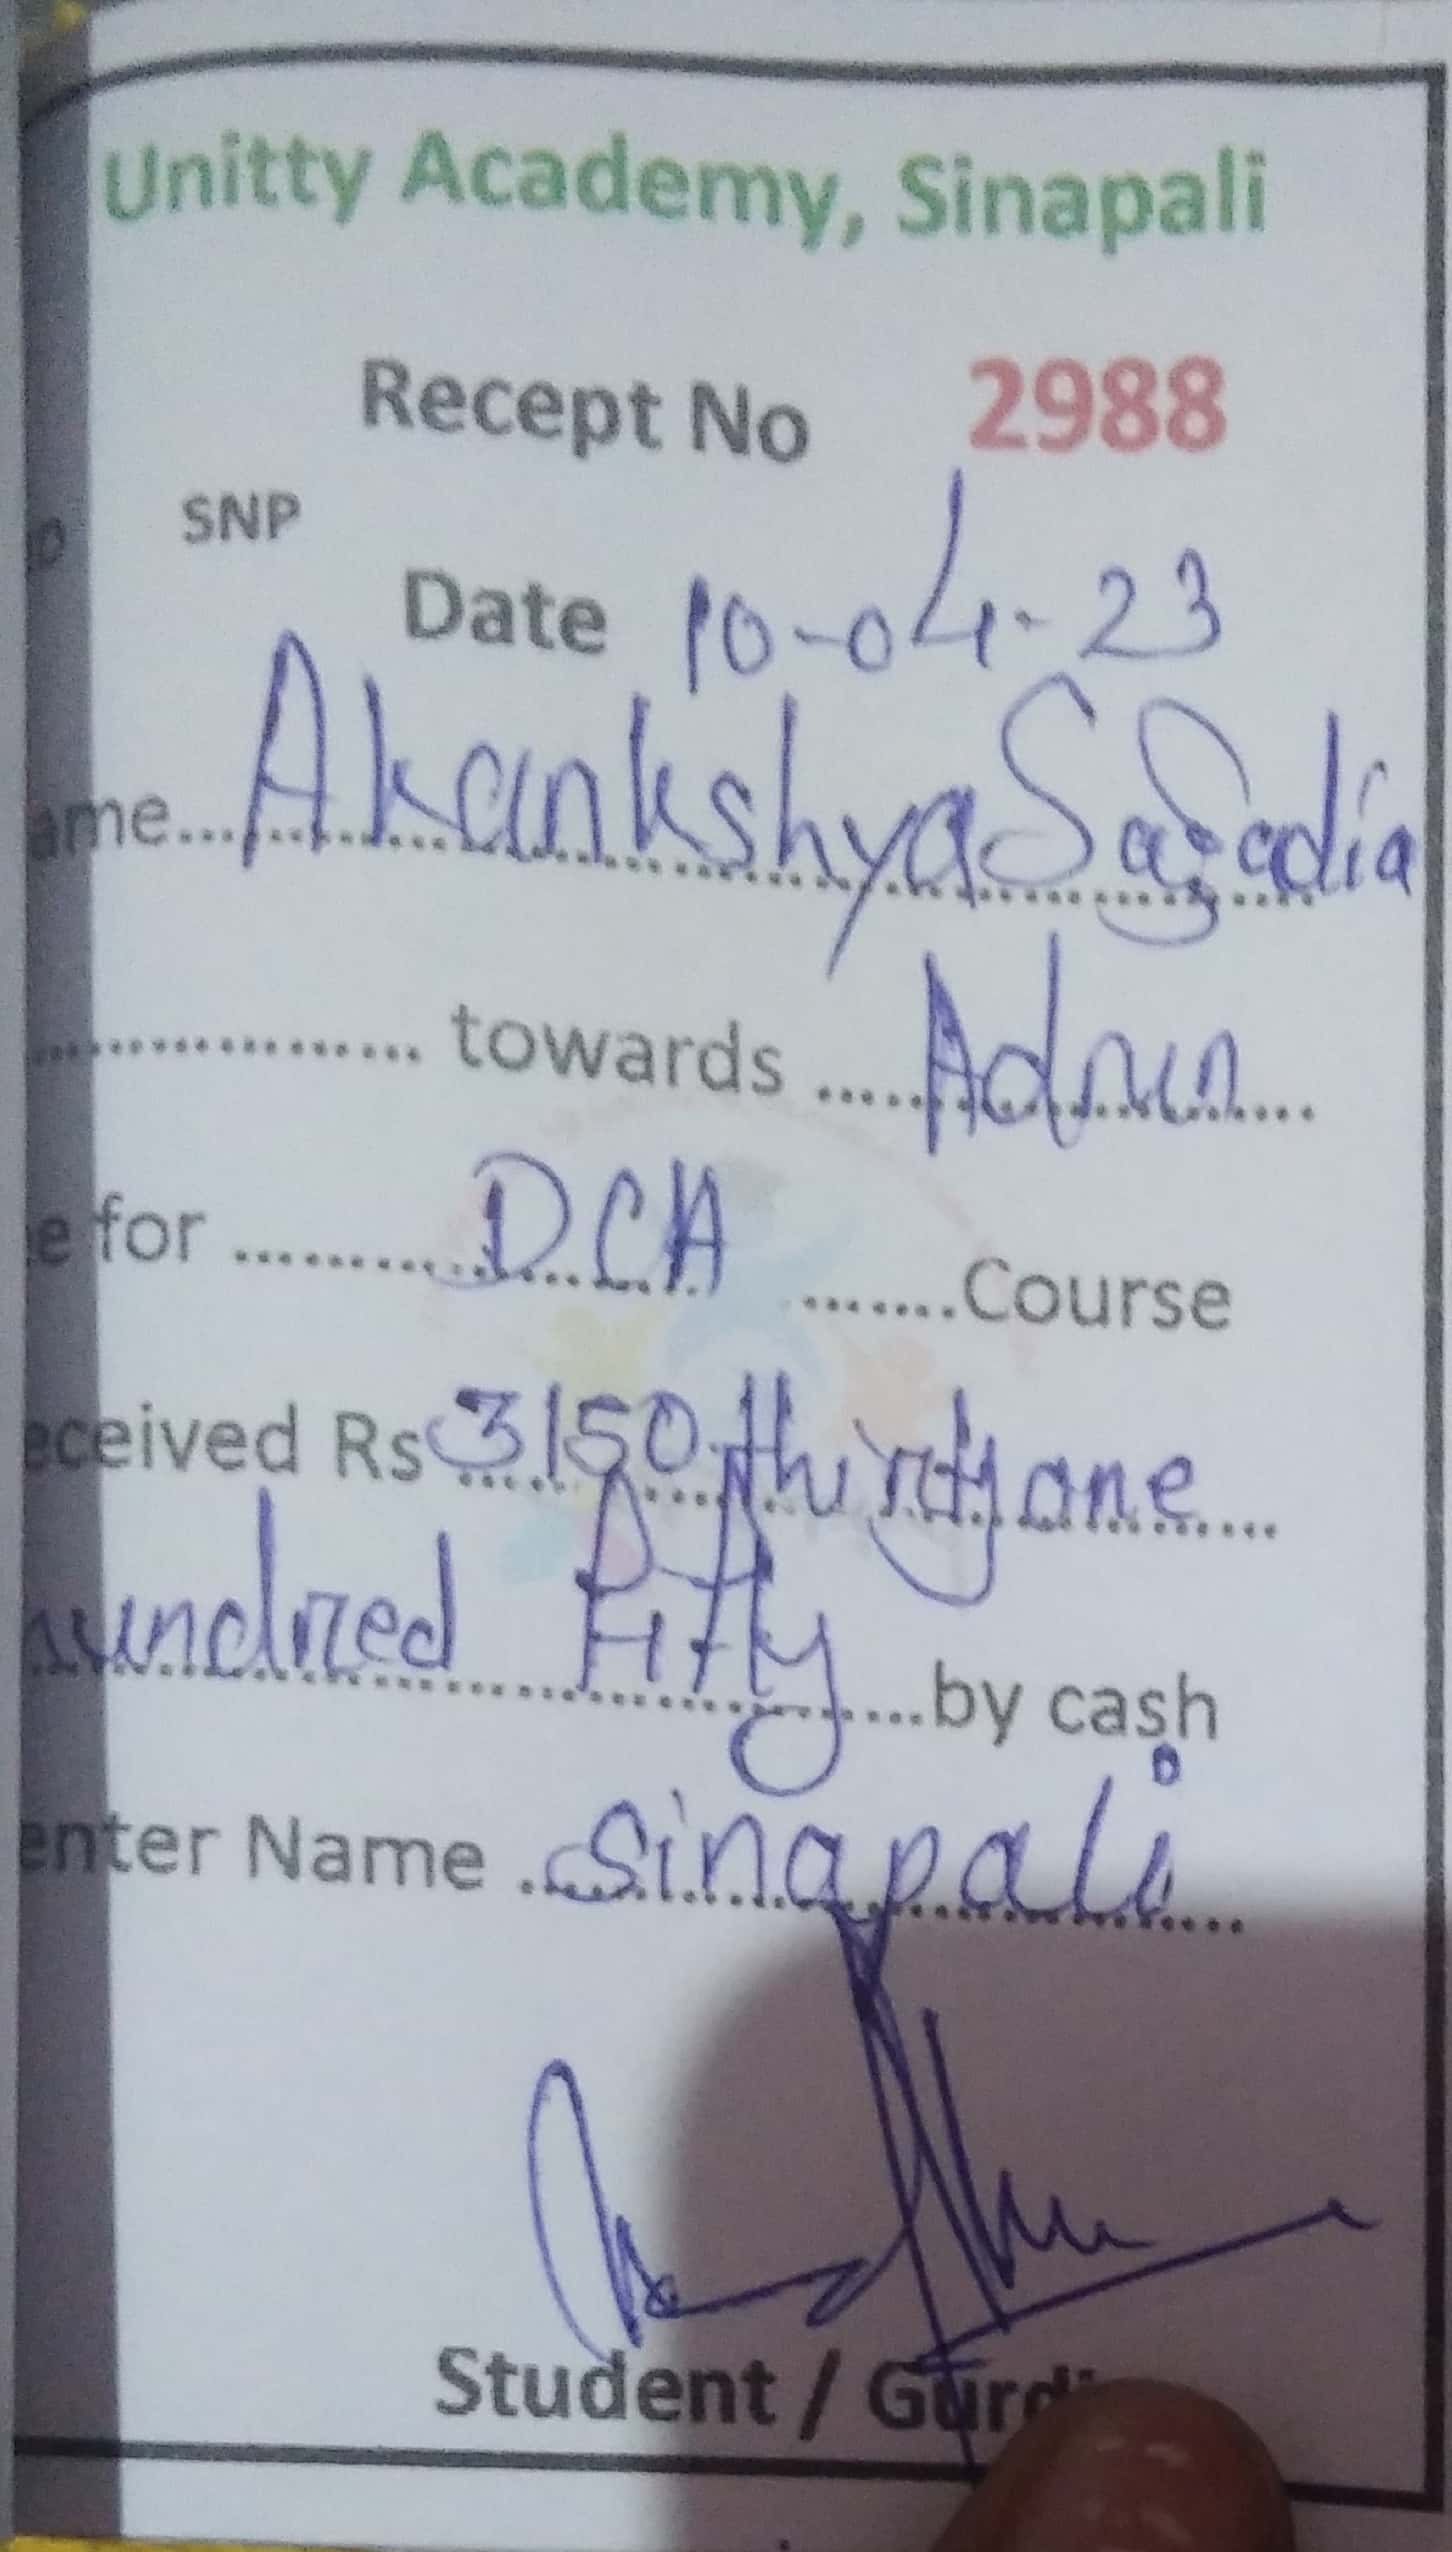 Unitty Academy, Sinapali
Recept No 2988
SNP
Date 10-04-23
ame... Akankshya
.................. towards ..... Admn
e for ......... DCA ....... Course
eceived Rs 3150 thirtyone
hundred Fifty .... by cash
enter Name Sinapali
Student /